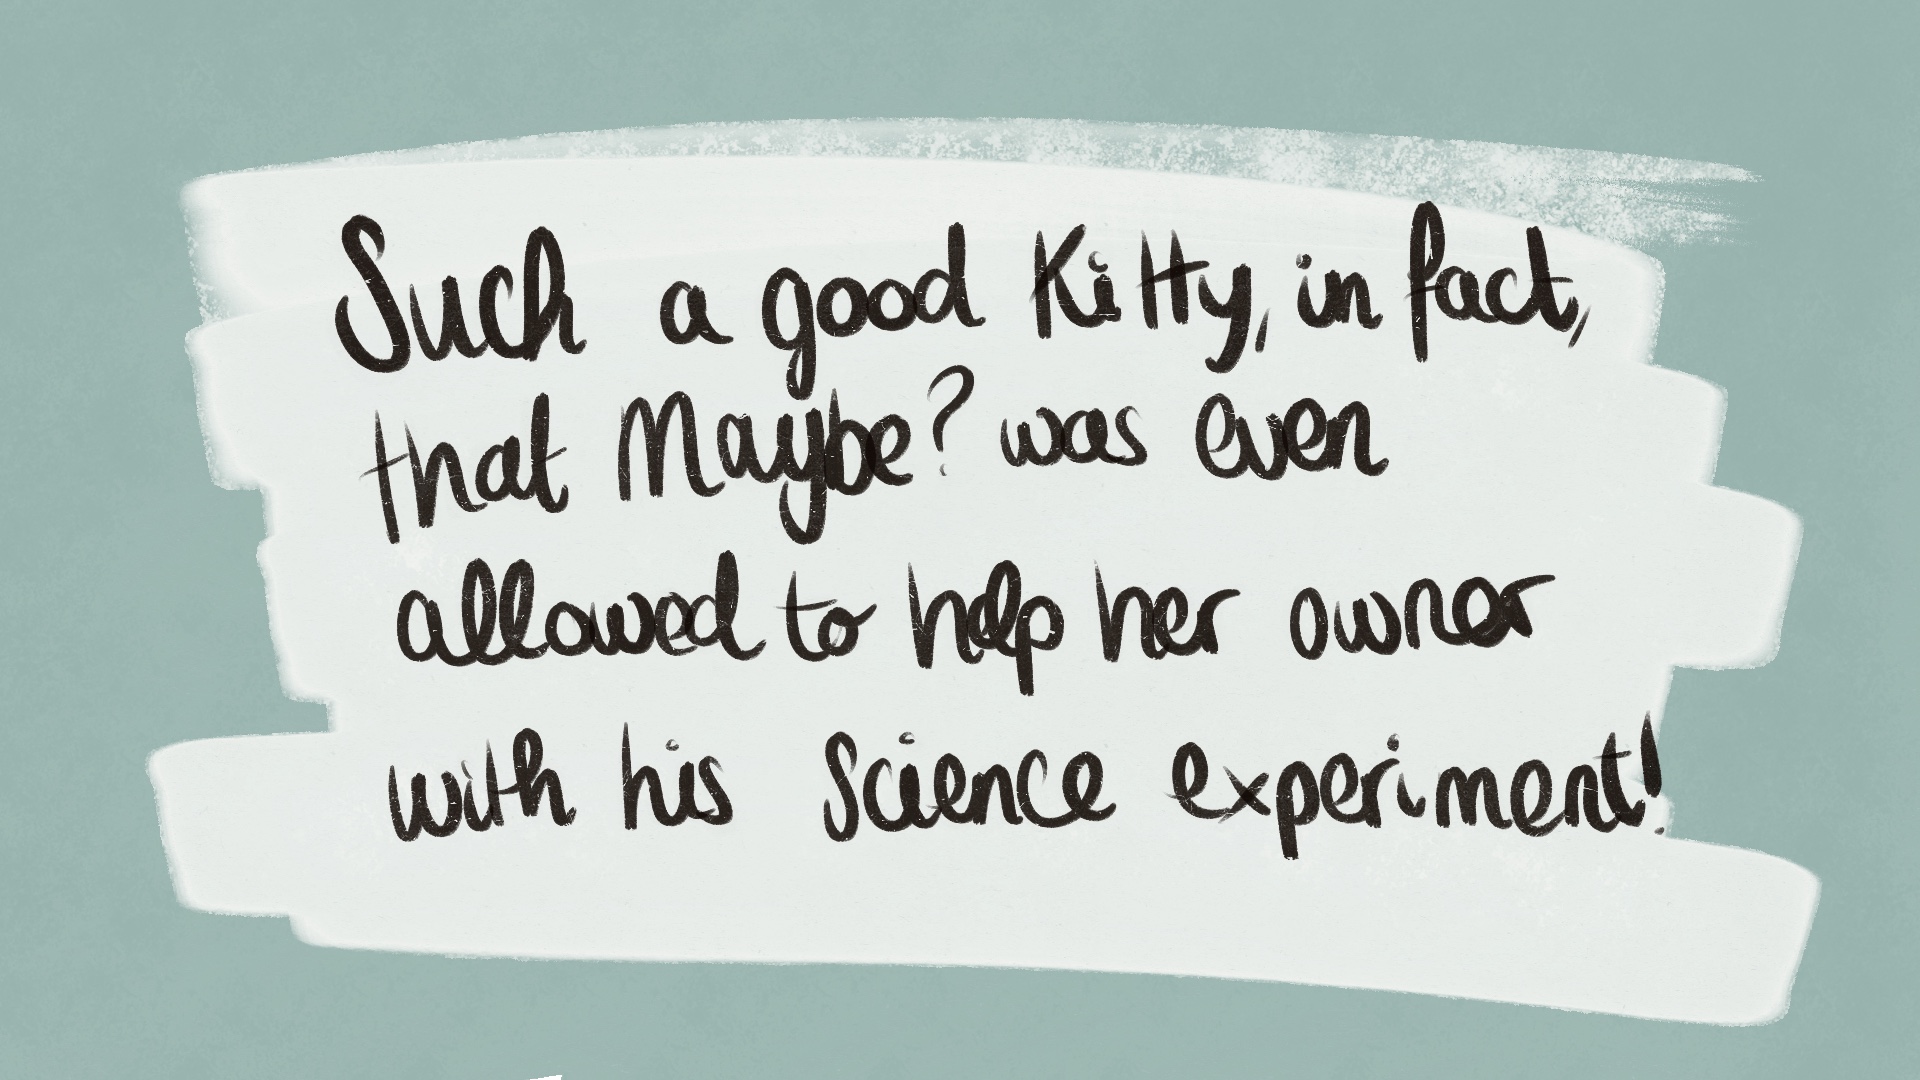 Such a good Kitty, in fact,
that Maybe? was even
allowed to help her owner
with his Science experiment!